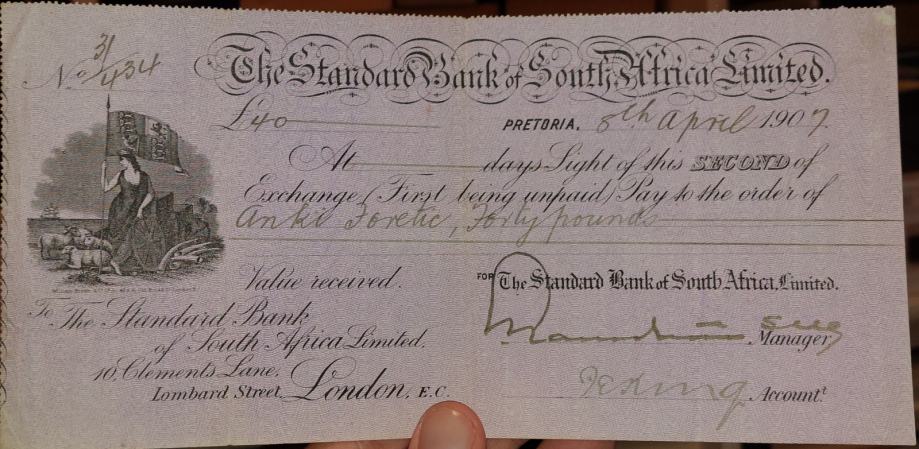 No 31/434
The Standard Bank of South Africa Limited.
£40 PRETORIA, 8th April 1907
At days Sight of this SECOND of
Exchange (First being unpaid) Pay to the order of
Anki Foretic, Forty pounds
Value received.
FOR The Standard Bank of South Africa, Limited.
To The Standard Bank
of South Africa Limited.
Manager
10, Clements Lane,
Lombard Street, London, E.C.
Accountt